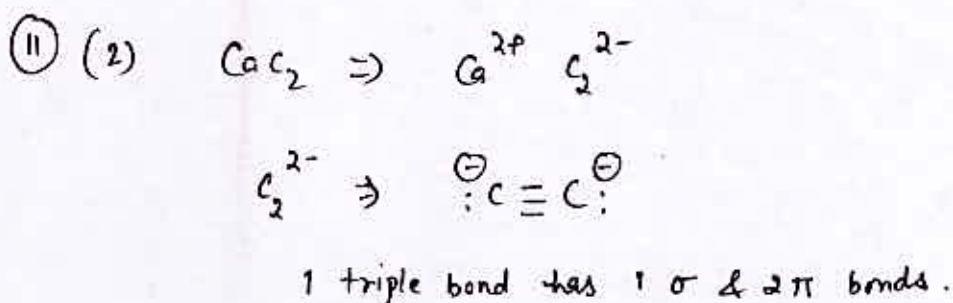 (11) (2) CaC₂ ⇒ Ca²⁺ C₂²⁻
C₂²⁻ ⇒ ⊖:C≡C:⊖
1 triple bond has 1 σ & 2π bonds.